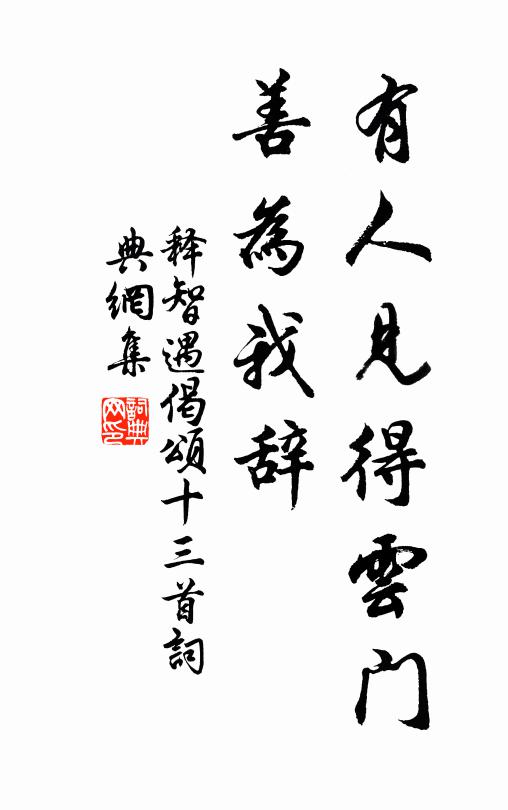 有人見得雲门
善為我辞
释智遇偈頌十三首詞
典網集
詞典网印